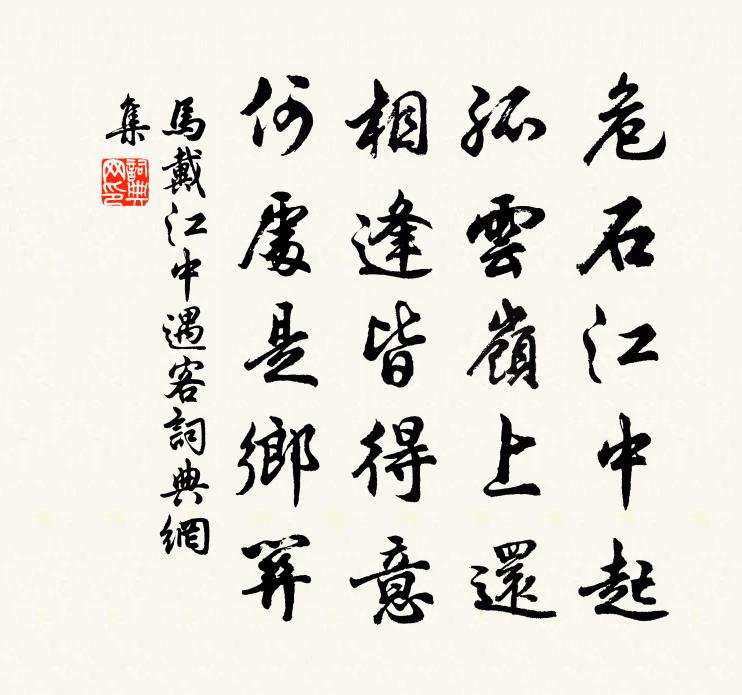 危石江中起
孤雲嶺上還
相逢皆得意
何處是鄉關
馬戴江中遇客詞典網
集
詞典
网印